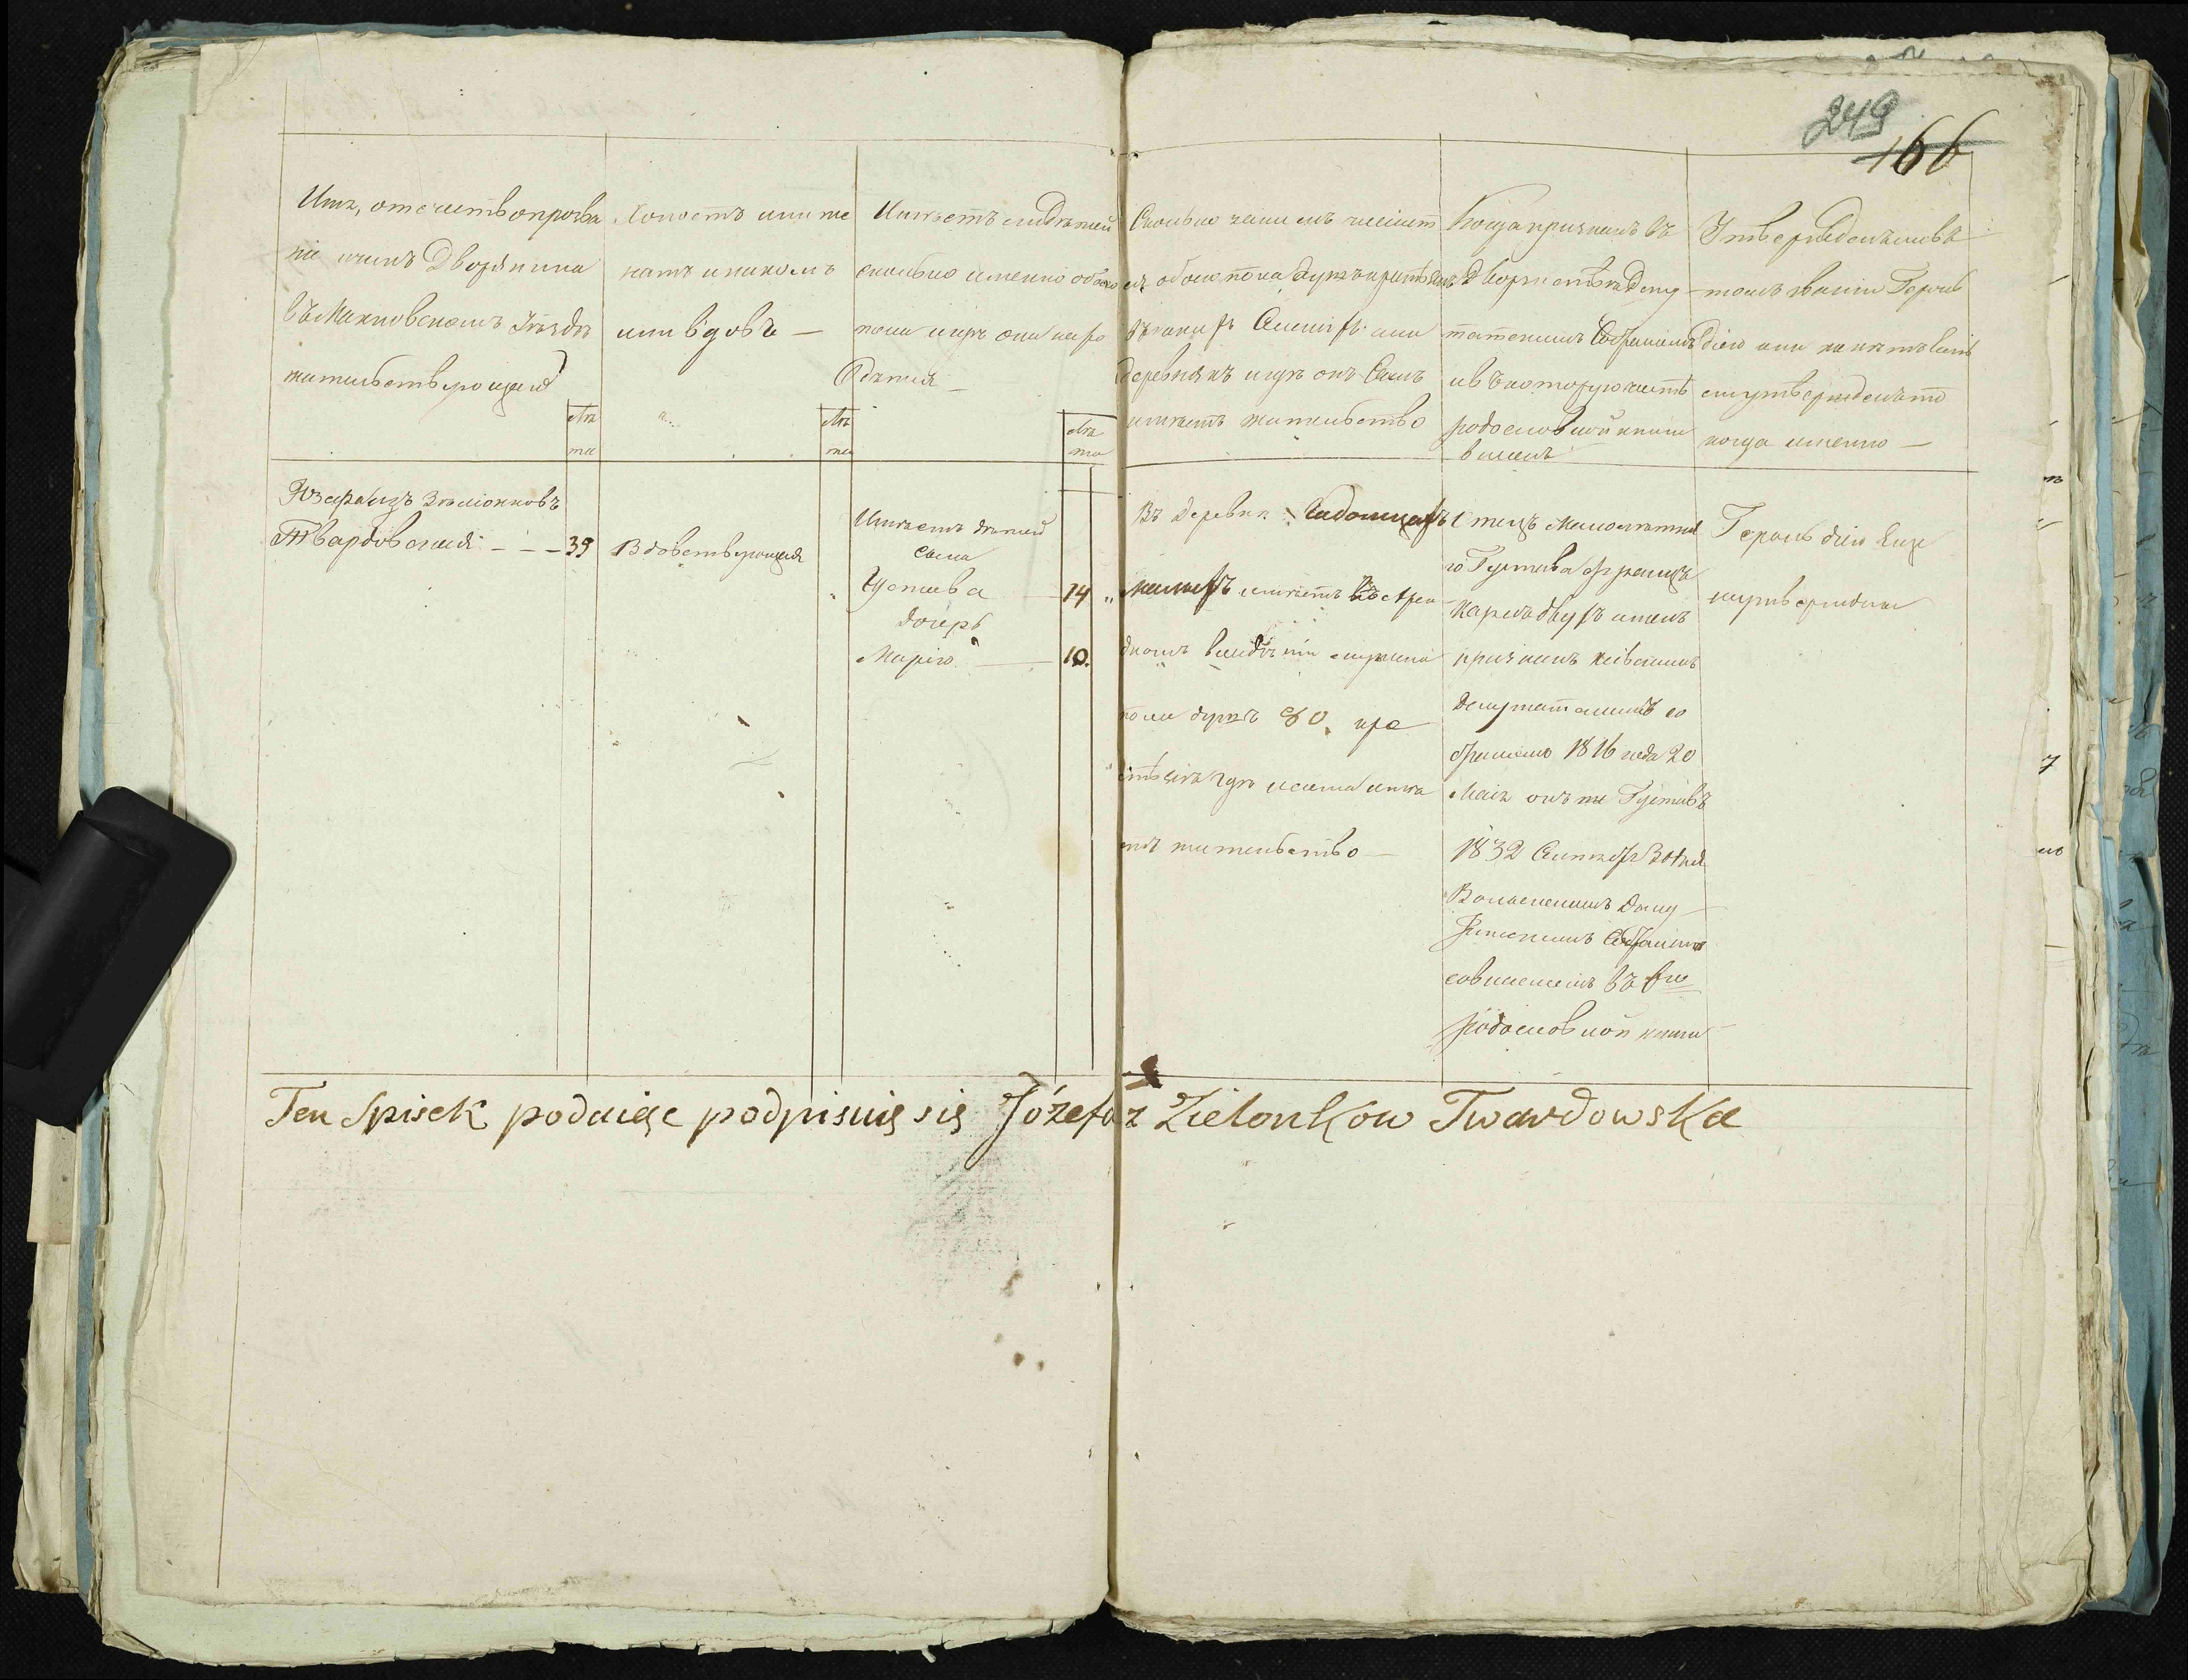 249
166
Имя, отечество прозва
ніе и чинъ Дворянина
въ Махновскомъ Уѣздѣ
жительствующаго
Лѣ
та
Холостъ или же
натъ и на комъ
или вдовъ —
Лѣ
та
Имѣетъ ли дѣтей
сколько именно обоего
пола и гдѣ они нахо
дятся —
Лѣ
та
Сколько за нимъ числит
ся обоего пола душъ крестьянъ
въ какихъ или
деревняхъ и гдѣ онъ Самъ
имѣетъ жительство
Когда признанъ въ
Дворянствѣ Депу
татскимъ Собраніемъ
и въ которую часть
родословной книги
внесенъ
Утвержденъ ли въ
томъ званіи Героль
діею или нѣтъ и если
утвержденъ то
когда именно —
Юзефа изъ Зѣлионковъ
Твардовская — — — 39
Вдовствующая
Имѣетъ дѣтей
сына
Густава — 14
дочерь
Марію — 10.
Въ деревнѣ
имѣетъ въ арен
дномъ владѣніи мужеска
пола душъ 80 кре
стьянъ гдѣ и сама имѣе
тъ жительство —
Отецъ Малолѣтня
го Густава Францъ
Карлъ двухъ именъ
признанъ Кіевскимъ
Депутатскимъ со
браніемъ 1816 года 20
Мая онъ же Густавъ
1832 Сентября 30 дня
Волынскимъ Депу
татскимъ Собраніемъ
со внесеніемъ въ
родословной книги
Герольдіею еще
не утвержденъ
Ten Spisek podaięc podpisuię się Józefa z Zielonkow Twardowska